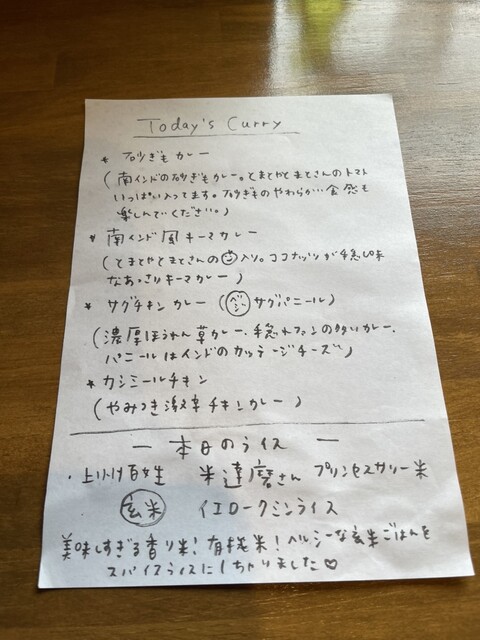 Today's Curry
* 砂ぎもカレー
(南インドの砂ぎもカレー。とまとやとまとさんのトマト
いっぱい入ってます。砂ぎものやわらかい食感も
楽しんでください。)
* 南インド風キーマカレー
(とまとやとまとさんの 入り。ココナッツが隠し味
なあっさりキーマカレー)
* サグチキンカレー (ベジ サグパニール)
(濃厚ほうれん草カレー。隠れファンの多いカレー。
パニールはインドのカッテージチーズ〃)
* カシミールチキン
(やみつき激辛チキンカレー)
― 本日のライス ―
・ 百生 米達磨さん プリンセスサリー米
玄米 イエロークミンライス
美味しすぎる香り米! 有機米! ヘルシーな玄米ごはんを
スパイスライスにしちゃいました♡